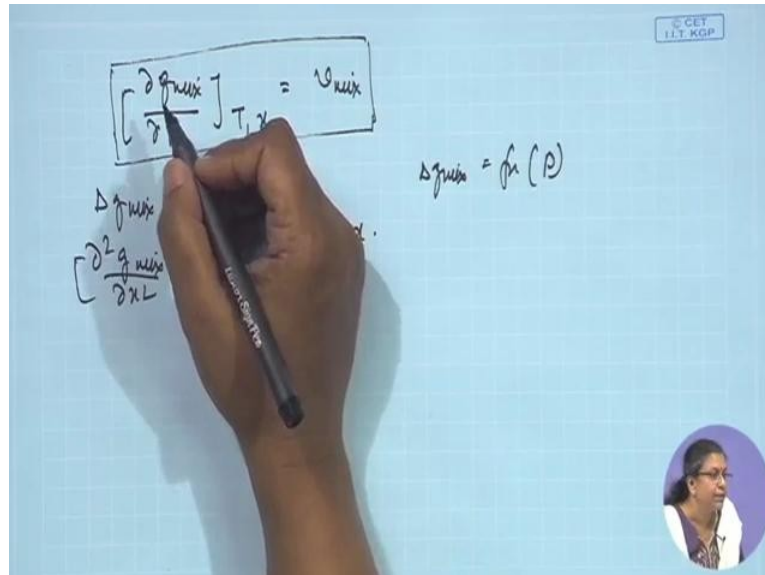 © CET
I.I.T. KGP
[∂g_mix / ∂ ]_T, x = v_mix
Δg_mix
Δg_mix = fn (P)
[∂² g_mix / ∂x²